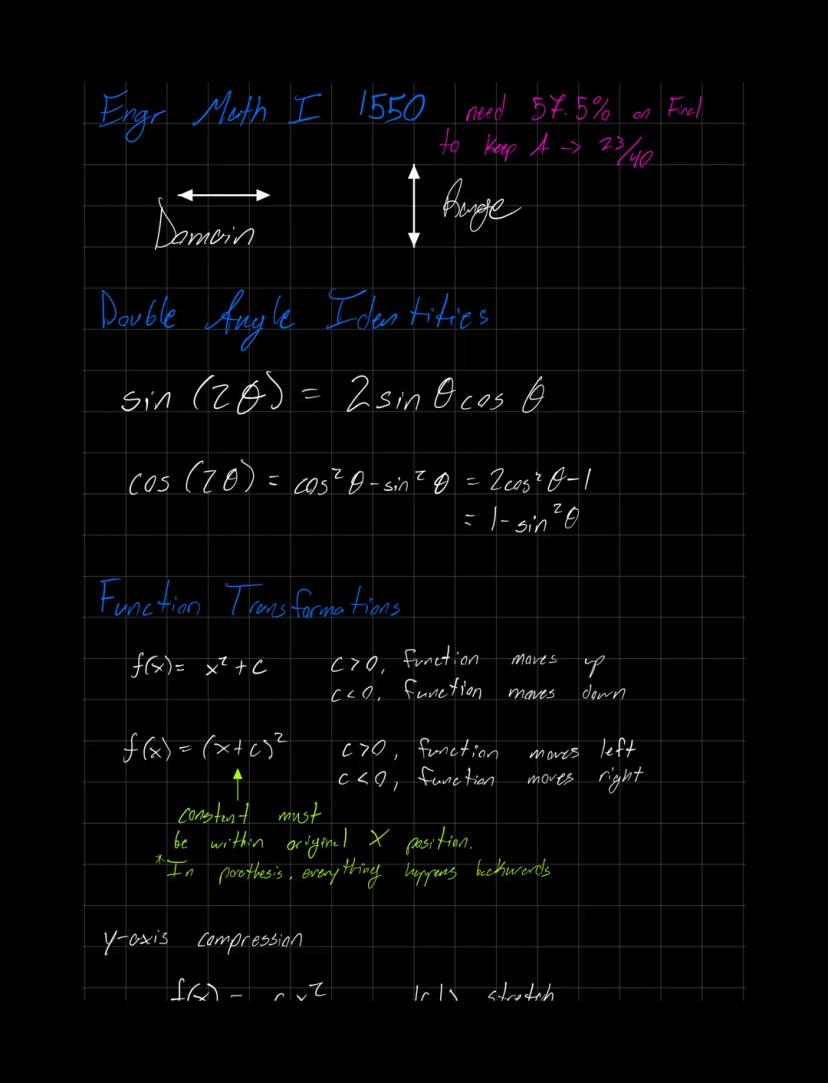 Engr Math I 1550
need 57.5% on Final
to keep A → 23/40
Domain
Range
Double Angle Identities
sin (2θ) = 2 sin θ cos θ
cos (2θ) = cos² θ - sin² θ = 2cos² θ - 1
= 1 - sin² θ
Function Transformations
f(x) = x² + c
c > 0, function moves up
c < 0, function moves down
f(x) = (x + c)²
c > 0, function moves left
c < 0, function moves right
constant must
be within original X position.
*In parothesis, everything happens backwards
y-axis compression
f(x) = cx² |c|> stretch